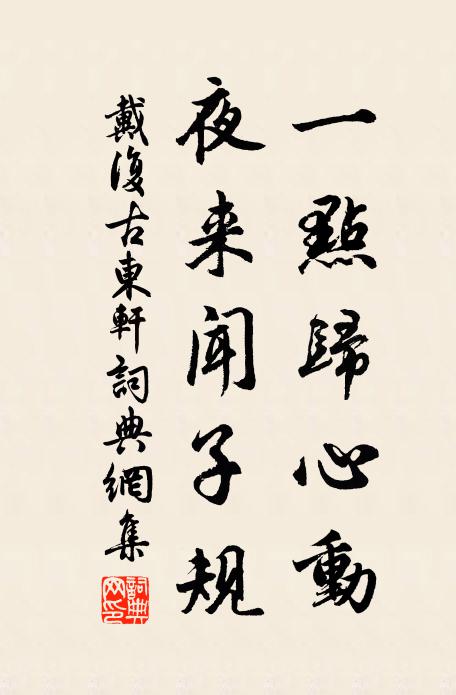 一點歸心動
夜来闻子規
戴復古東軒詞典網集
詞典网印